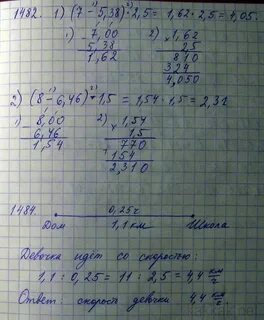 1482. 1) (7 - 5,38) · 2,5 = 1,62 · 2,5 = 1,05.
1) 7,00 2) 1,62
- 5,38 25
1,62 810
324
4,050
2) (8 - 6,46) · 1,5 = 1,54 · 1,5 = 2,31
1) 8,00 2) 1,54
- 6,46 × 1.5
1,54 770
154
2,310
1484. 0,25ч
Дом 1,1 км Школа
Девочка идёт со скоростью:
1,1 : 0,25 = 11 : 2,5 = 4,4 км/ч
Ответ: скорость девочки 4,4 км/ч.